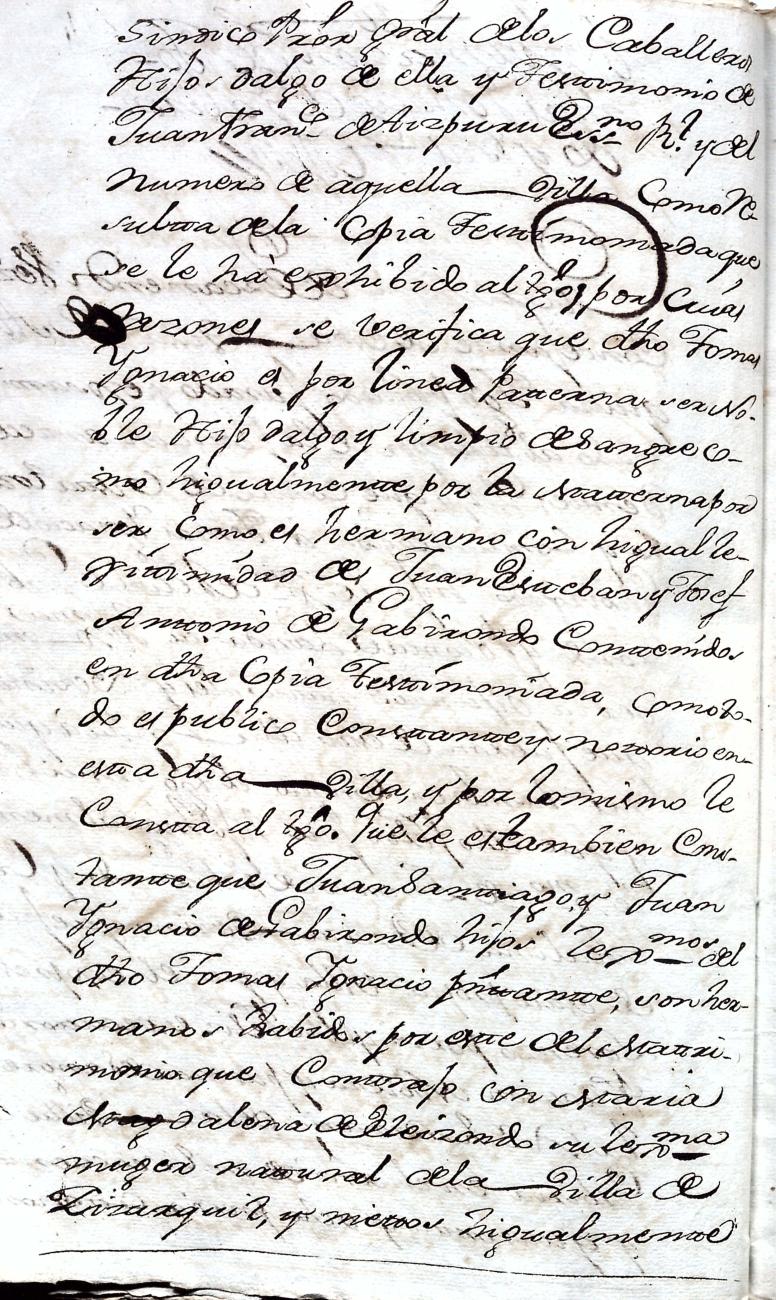 Sindico Pròr grâl delos Caballeros
Hijos dalgo de ella y Testimonio de
Juan Franco. de Aizpuru Essno. Rl. y del
Numero de aquella Villa Como Re-
sulta dela Copia Testimoniada que
se le há exhibido al tgô, por cuias
Razones se Verifica que dho Tomas
Ygnacio es por linea Paterna ser No-
ble Hijo dalgo y limpio de Sangre co-
mo higualmente por la Materna por
ser Como es hermano con higual le-
gitimidad de Juan Esteban y Josef
Antonio de Gabirondo Contenidos
en dha Copia Testimoniada, como to-
do es publico Constante y notorio en-
esta dha Villa, y por lo mismo le
Consta al tgô. Que le es tambien Cons-
tante que Juan Santiago, y Juan
Ygnacio de Gabirondo hijos lexmos del
dho Tomas Ygnacio pñtante, son her-
manos habidos por este del Matri-
monio que Contrajo con Maria
Magdalena de Eleizondo su lexma
muger natural dela Villa de
Lizarquil, y nietos higualmente